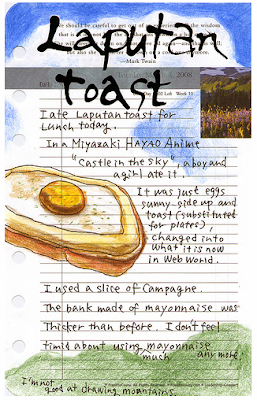 Laputan
toast
—Mark Twain
I ate Laputan toast for
Lunch today.
In a Miyazaki HAYAO Anime
"Castle in the sky", a boy and
a girl ate it.
It was just eggs
sunny-side up and
toast (substituted
for plates),
changed into
what it is now
in Web World.
I used a slice of Campagne.
The bank made of mayonnaise was
Thicker than before. I don't feel
timid about using mayonnaise
much any more.
I'm not
good at drawing mountains.